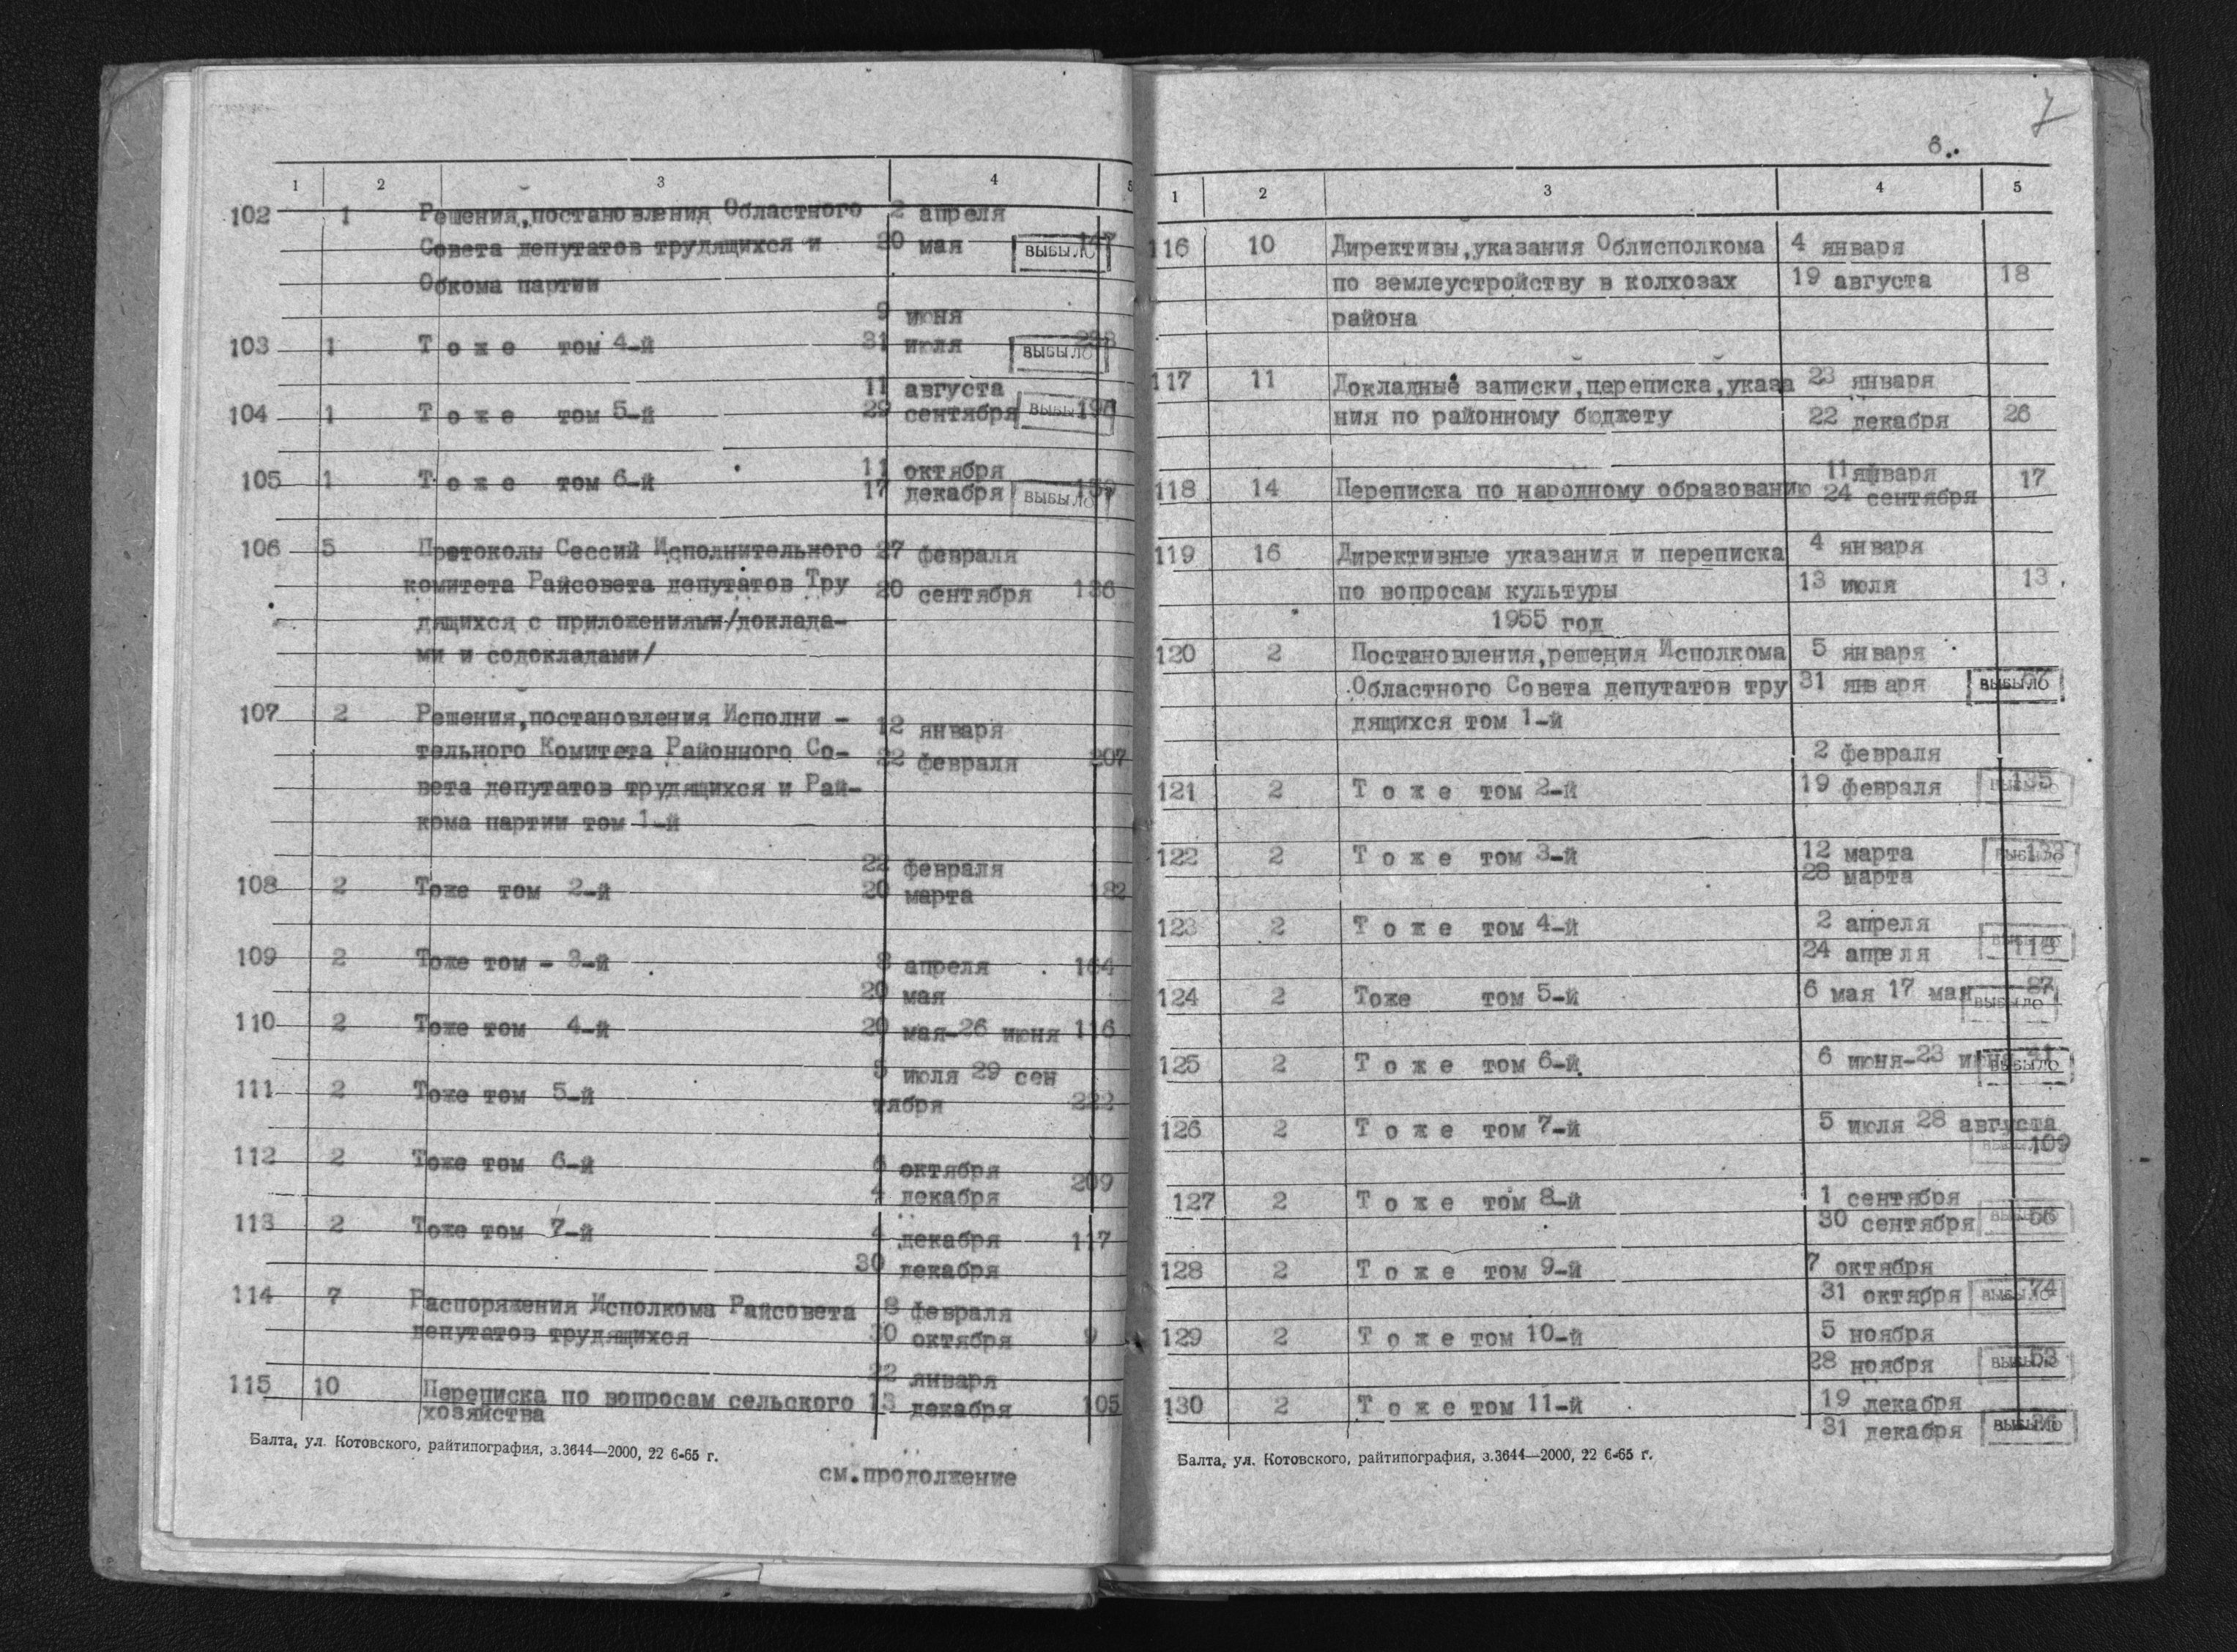 1 2 3 4 5
102 1 Решения,постановления Областного 2 апреля
Совета депутатов трудящихся и 20 мая 147 ВЫБЫЛО
Обкома партии
9 июня
103 1 Т о ж е том 4-й 31 июля ВЫБЫЛО
11 августа
104 1 Т о ж е том 5-й 29 сентября ВЫБЫЛО
11 октября
105 1 Т о ж е том 6-й 17 декабря ВЫБЫЛО
106 5 Протоколы Сессий Исполнительного 27 февраля
комитета Райсовета депутатов Тру 20 сентября 136
дящихся с приложениями/доклада-
ми и содокладами/
107 2 Решения,постановления Исполни - 12 января
тельного Комитета Районного Со- 22 февраля 207
вета депутатов трудящихся и Рай-
кома партии том 1-й
22 февраля
108 2 Тоже том 2-й 20 марта 182
109 2 Тоже том - 3-й 8 апреля 164
20 мая
110 2 Тоже том 4-й 20 мая-26 июня 116
5 июля 29 сен
111 2 Тоже том 5-й тября 222
112 2 Тоже том 6-й 6 октября
4 декабря 209
113 2 Тоже том 7-й 4 декабря 117
30 декабря
114 7 Распоряжения Исполкома Райсовета 8 февраля
депутатов трудящихся 30 октября 9
22 января
115 10 Переписка по вопросам сельского 13 декабря 105
хозяйства
Балта, ул. Котовского, райтипография, з.3644—2000, 22 6-65 г.
см.продолжение
7
6.
1 2 3 4 5
116 10 Директивы,указания Облисполкома 4 января
по землеустройству в колхозах 19 августа 18
района
117 11 Докладные записки,переписка,указа 23 января
ния по районному бюджету 22 декабря 26
11 января
118 14 Переписка по народному образованию 24 сентября 17
119 16 Директивные указания и переписка 4 января
по вопросам культуры 13 июля 13
1955 год
120 2 Постановления,решения Исполкома 5 января
Областного Совета депутатов тру 31 января ВЫБЫЛО
дящихся том 1-й
2 февраля
121 2 Т о ж е том 2-й 19 февраля 135 ВЫБЫЛО
122 2 Т о ж е том 3-й 12 марта ВЫБЫЛО
28 марта
123 2 Т о ж е том 4-й 2 апреля
24 апреля 118 ВЫБЫЛО
124 2 Тоже том 5-й 6 мая 17 мая 87 ВЫБЫЛО
125 2 Т о ж е том 6-й 6 июня-23 июня ВЫБЫЛО
126 2 Т о ж е том 7-й 5 июля 28 августа
109 ВЫБЫЛО
127 2 Т о ж е том 8-й 1 сентября
30 сентября 56 ВЫБЫЛО
128 2 Т о ж е том 9-й 7 октября
31 октября 74 ВЫБЫЛО
129 2 Т о ж е том 10-й 5 ноября
28 ноября 53 ВЫБЫЛО
130 2 Т о ж е том 11-й 19 декабря
31 декабря ВЫБЫЛО
Балта, ул. Котовского, райтипография, з.3644—2000, 22 6-65 г.